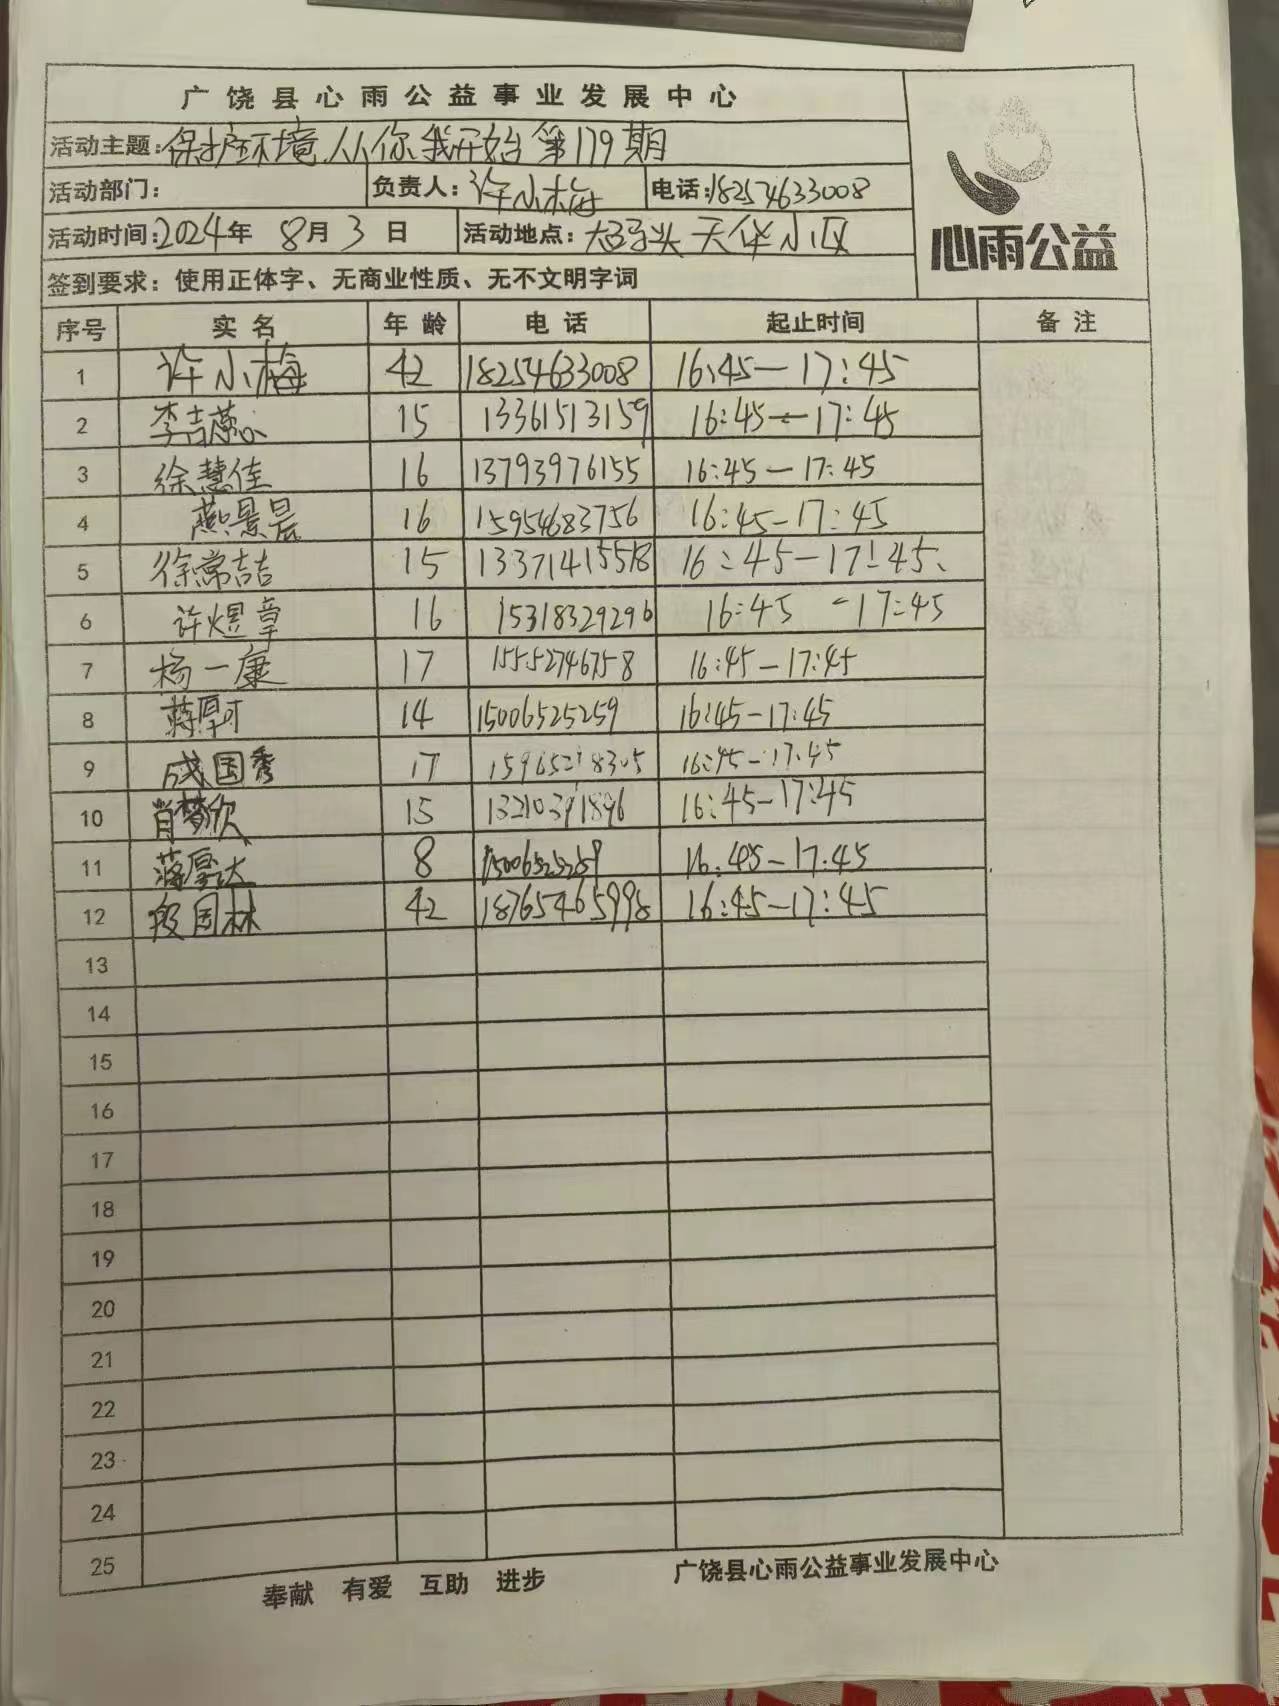 广饶县心雨公益事业发展中心
活动主题:保护环境从你我开始第179期
活动部门: 负责人:许小梅 电话:18254633008
活动时间:2024年 8月3日 活动地点:大码头天华小区
心雨公益
签到要求:使用正体字、无商业性质、无不文明字词
序号 实名 年龄 电话 起止时间 备注
1 许小梅 42 18254633008 16:45—17:45
2 李吉蕊 15 13361513159 16:45—17:45
3 徐慧佳 16 13793976155 16:45—17:45
4 燕景晨 16 15954683756 16:45-17:45
5 徐常喆 15 13371415518 16:45—17:45、
6 许煜章 16 15318329296 16:45 -17:45
7 杨一康 17 15552746758 16:45—17:45
8 蒋厚可 14 15006525259 16:45-17:45
9 成国秀 17 15965218305 16:45-17:45
10 肖梦欣 15 13210391896 16:45-17:45
11 蒋厚达 8 15006525259 16:45-17:45
12 段国林 42 18765465998 16:45-17:45
13
14
15
16
17
18
19
20
21
22
23
24
25
奉献 有爱 互助 进步 广饶县心雨公益事业发展中心